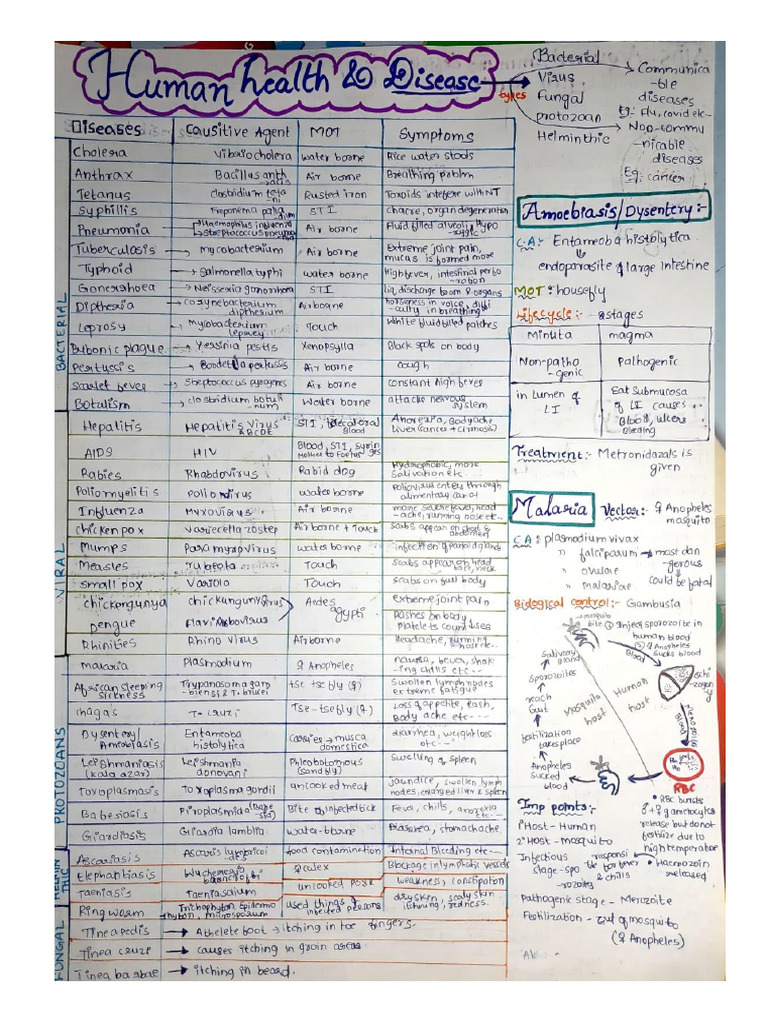 Human health & Disease
types
Bacterial
Virus
Fungal
protozoan
Helminthic
Communica
-ble
diseases
Eg: Flu, covid etc-
Non-commu
-nicable
diseases
Eg: cancer
Diseases Causitive Agent MOT Symptoms
BACTERIAL
Cholera Vibrio cholera water borne Rice water stools
Anthrax Bacillus anth racis Air borne Breathing problm
Tetanus clostridium teta -ni Rusted iron Toxoids intefere with NT
Syphillis Treponema pallidium STI chacre, organ degeneration
Pneumonia Haemophilus influenza Streptococcus pneumon Air borne Fluid filled alveoli, hypo -xygic
Tuberculosis → mycobacterium Air borne Extreme joint pain, mucas is formed more
Typhoid → Salmonella typhi water borne High fever, intestinal perfo -ration
Gonorrhoea → Neisseria gonorrhoea STI liq. discharge from ♂ organs
Diptheria → corynebacterium diptherium Airborne horseness in voice, diffi -culty in breathing
Leprosy → Mycobacterium leprey Touch White fluid filled patches
Bubonic plague → Yersinia pestis Xenopsylla Black spots on body
Pertussis → Boodetella pertussis Air borne cough
Scarlet fever → Streptococcus pyrogenes Air borne constant high fever
Botulism → clostridium botuli -num Water borne attacke nervous system
VIRAL
Hepatitis Hepatitis Virus ABCDE STI, Blood Anorexia, Bodyache Liver (cancer + cirrhosis)
AIDS HIV Blood, STI, Syrin ges Mother to Foetus
Rabies Rhabdovirus Rabid dog Hydrophobic, more Salivation etc
Poliomyelitis Polio virus water borne Poliovirus enters through alimentary canal
Influenza Myxovirus Air borne more severe fever, head -ache, running nose etc--
chicken pox varrecella zoster Air borne + Touch scabs appear on chest & abdomen
Mumps Paramyxovirus water borne infection of parotid glands
Measles rubeola Touch scabs appear on head face, neck
small pox Variola Touch Scabs on full body
chickongunya chickungunyavirus Aedes agypti extreme joint pain
Dengue Flavi Arbovirus Rashes on body Platelets count ses
Rhinities Rhino virus Airborne Headache, running nose etc--
PROTOZOANS
malaria Plasmodium ♀ Anopheles nausea, fever, shak -ing chills etc--
African sleeping sickness Trypanosoma gam -biensi & T. brucei tse tse fly (♀) Swollen lymph nodes extreme fatigue
chagas T- cruzi Tse-tse fly (♀) Loss of appetite, rash, Body ache etc---
Dysentery/ Amoebiasis Entamoeba histolytica carries → musca domestica diarrhea, weight loss etc--
Leishmaniasis (kala azar) Leishmania donovani Phlebotomous (sand fly) Swelling of spleen
Toxoplasmosis Toxoplasma gondii uncooked meat jaundice, swollen lymph nodes, enlarged liver & spleen
Babesiosis Piroplasmida Bite of infected tick Feva, chills, anorexia etc---
Giardiosis Giardia lamblia water-borne Diarrhea, stomachache
HELMIN THIC
Ascariasis Ascaris lumbricoi -des food contamination Internal Bleeding etc--
Elephantiasis Wuchereria bancrofti ♀ culex Blockage in lymphatic vessels
Taeniasis Taenia saium uncooked pork weakness, constipation
FUNGAL
Ring worm Trichophyton, Epidermo phyton, microsporium used things of infected persons dry skin, scaly skin itching, redness.
Tinea pedis → Athelete foot → itching in toe fingers.
Tinea cruzi → causes itching in groin areas.
Tinea barbae → itching in beard.
Amoebiasis/Dysentery:-
C.A: Entameoba histolytica
endoparasite of large intestine
MOT: housefly
Lifecycle:- 2 stages
Minuta magma
Non-patho -genic Pathogenic
in lumen of LI Eat submucosa of LI causes Blood, ulcers bleeding
Treatment:- Metronidazals is
given
Malaria Vector: ♀ Anopheles
masquito
CA: plasmodium vivax
" falciparum → most dan
" ovulare gerous
" malariae could be fatal
Biological control:- Gambusia
mosquito
bite & inject sporozoite in
human blood
♀ Anopheles
sucks blood
Blood
schi
-zogon
y
Salivary
gland
Sporozoites
reach
Gut
fertilization
takes place
Anopheles
sucked
blood
Mosquito
host
Human
host
Blood
RBC
• RBC bursts
♂ + ♀ gametocytes
release but do not
fertilize due to
high temperature
Haemozoin
released
responsi
ble for fever
& chills
Imp points:-
1° Host - Human
2° Host - mosquito
Infectious
stage - spo
-rozoites
Pathogenic stage - Merozoite
Fertilization - Gut of mosquito
(♀ Anopheles)